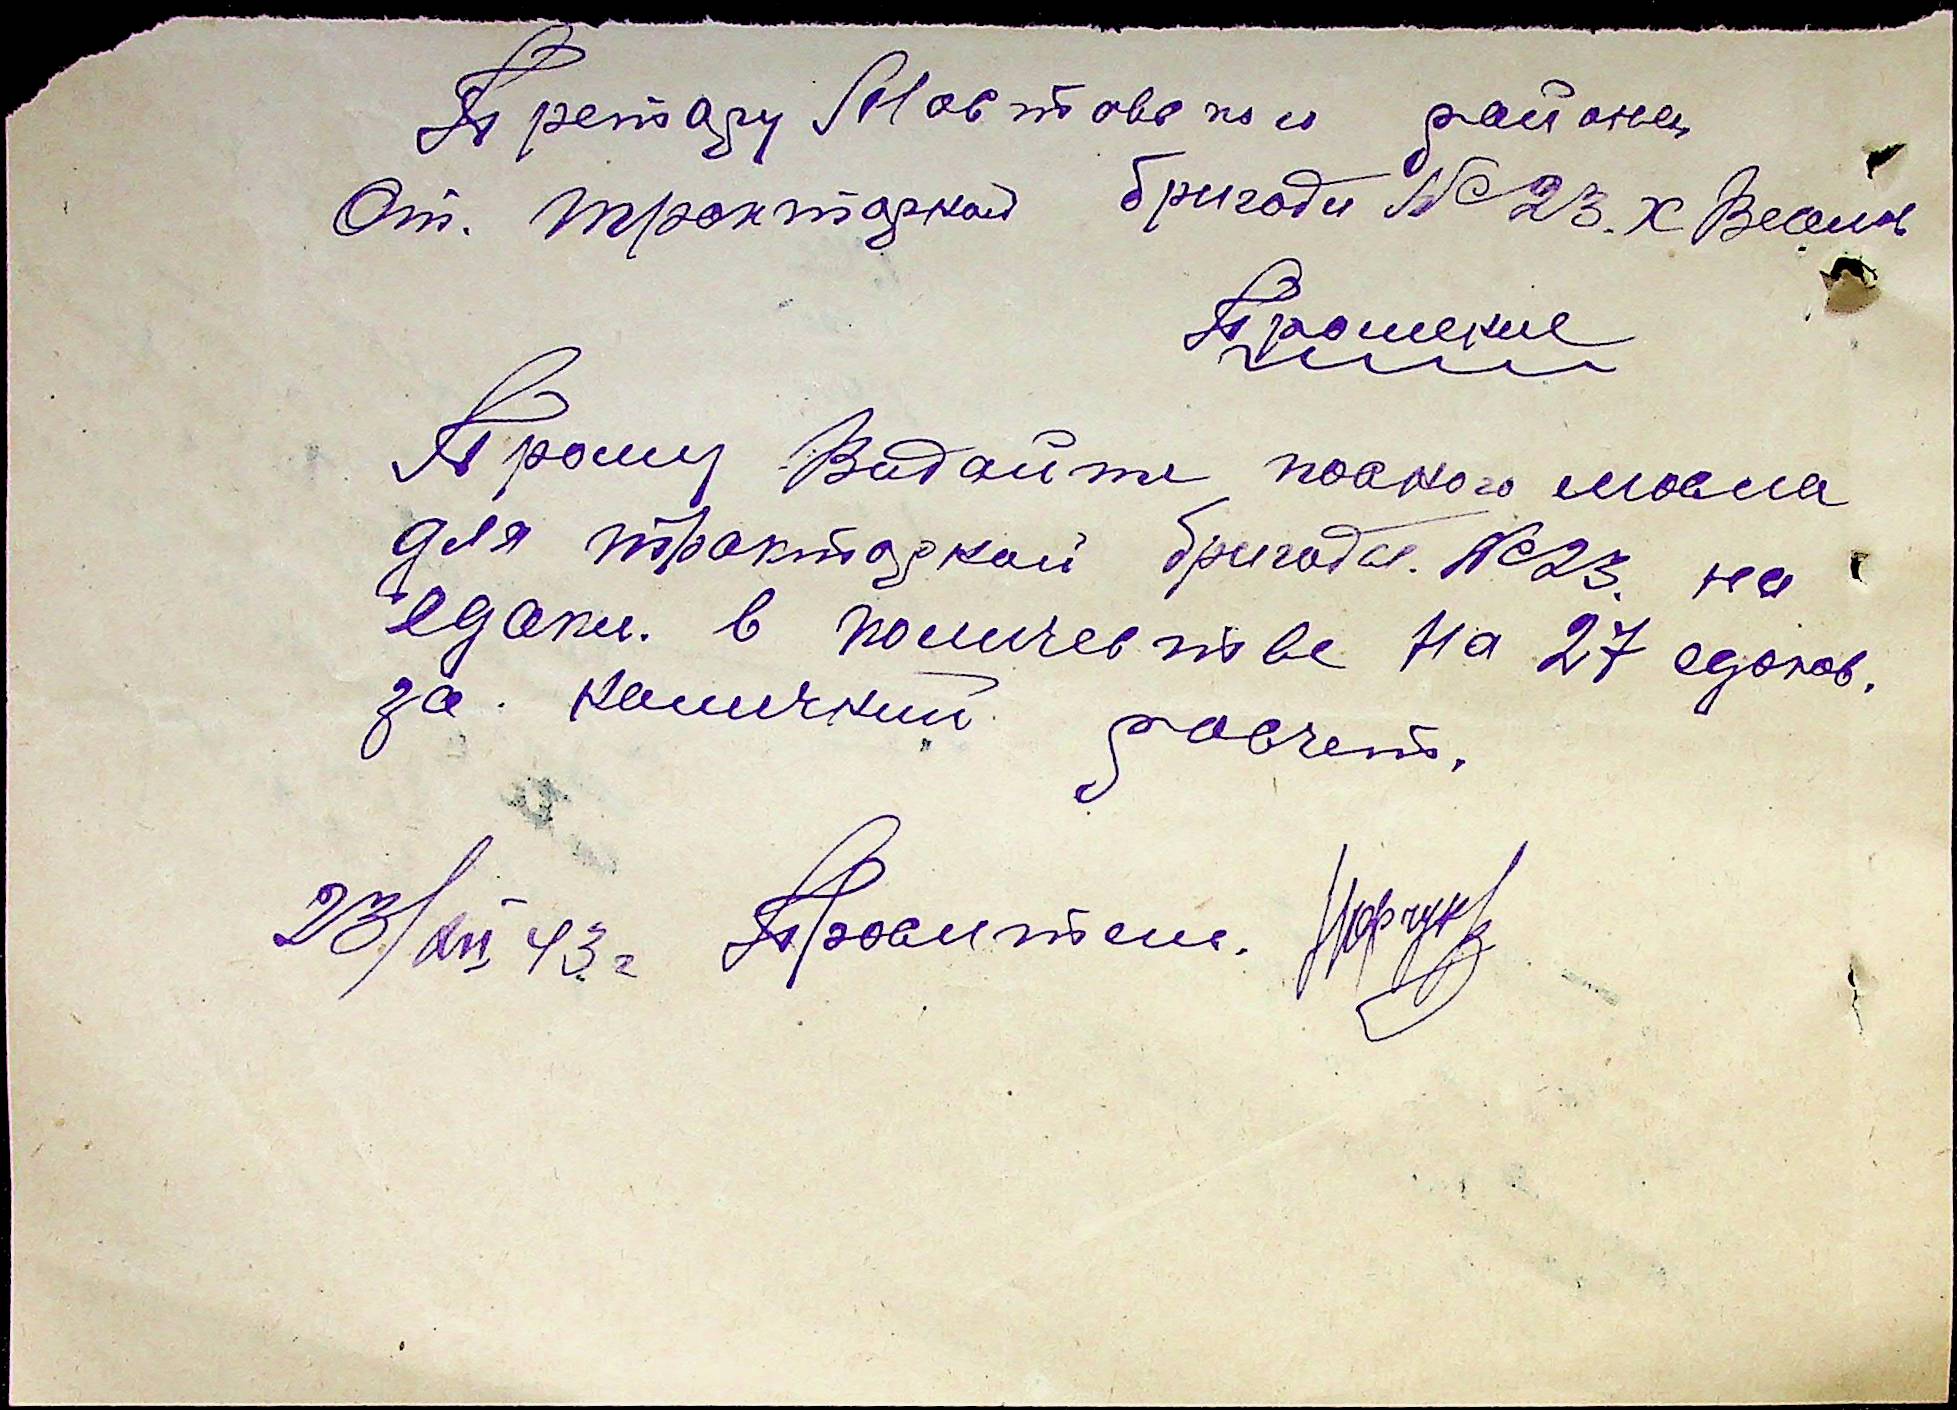 Претору Мостовского района
От. тракторной бригади № 23. х Веселов
Прошение
Прошу Видайте посного масла
для тракторной бригады. № 23. на
едоки. в количестве на 27 едоков.
за. наличний расчет.
23/XII 43 г Проситель.